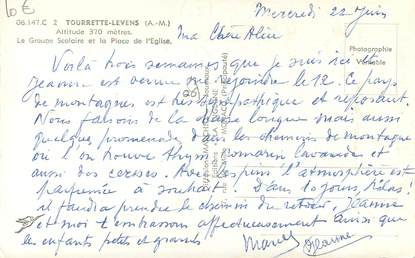 10€
06.147.C 2 TOURRETTE-LEVENS (A.-M.)
Altitude 370 mètres.
Le Groupe Scolaire et la Place de l'Eglise.
Photographie
Véritable
Mercredi 22 Juin
Ma Chère Alice
Voilà trois semaines que je suis ici et
Jeanne est venue me rejoindre le 12. Ce pays
de montagnes est très sympathique et reposant.
Nous faisons de la chaise longue mais aussi
quelques promenades dans les chemins de montagne
où l'on trouve thym romarin lavande et
aussi des cerises. Avec les pins l'atmosphère est
parfumée à souhait ! Dans 10 jours, hélas !
il faudra prendre le chemin du retour. Jeanne
et moi t'embrassons affectueusement ainsi que
les enfants petits et grands
Marcel Jeanne